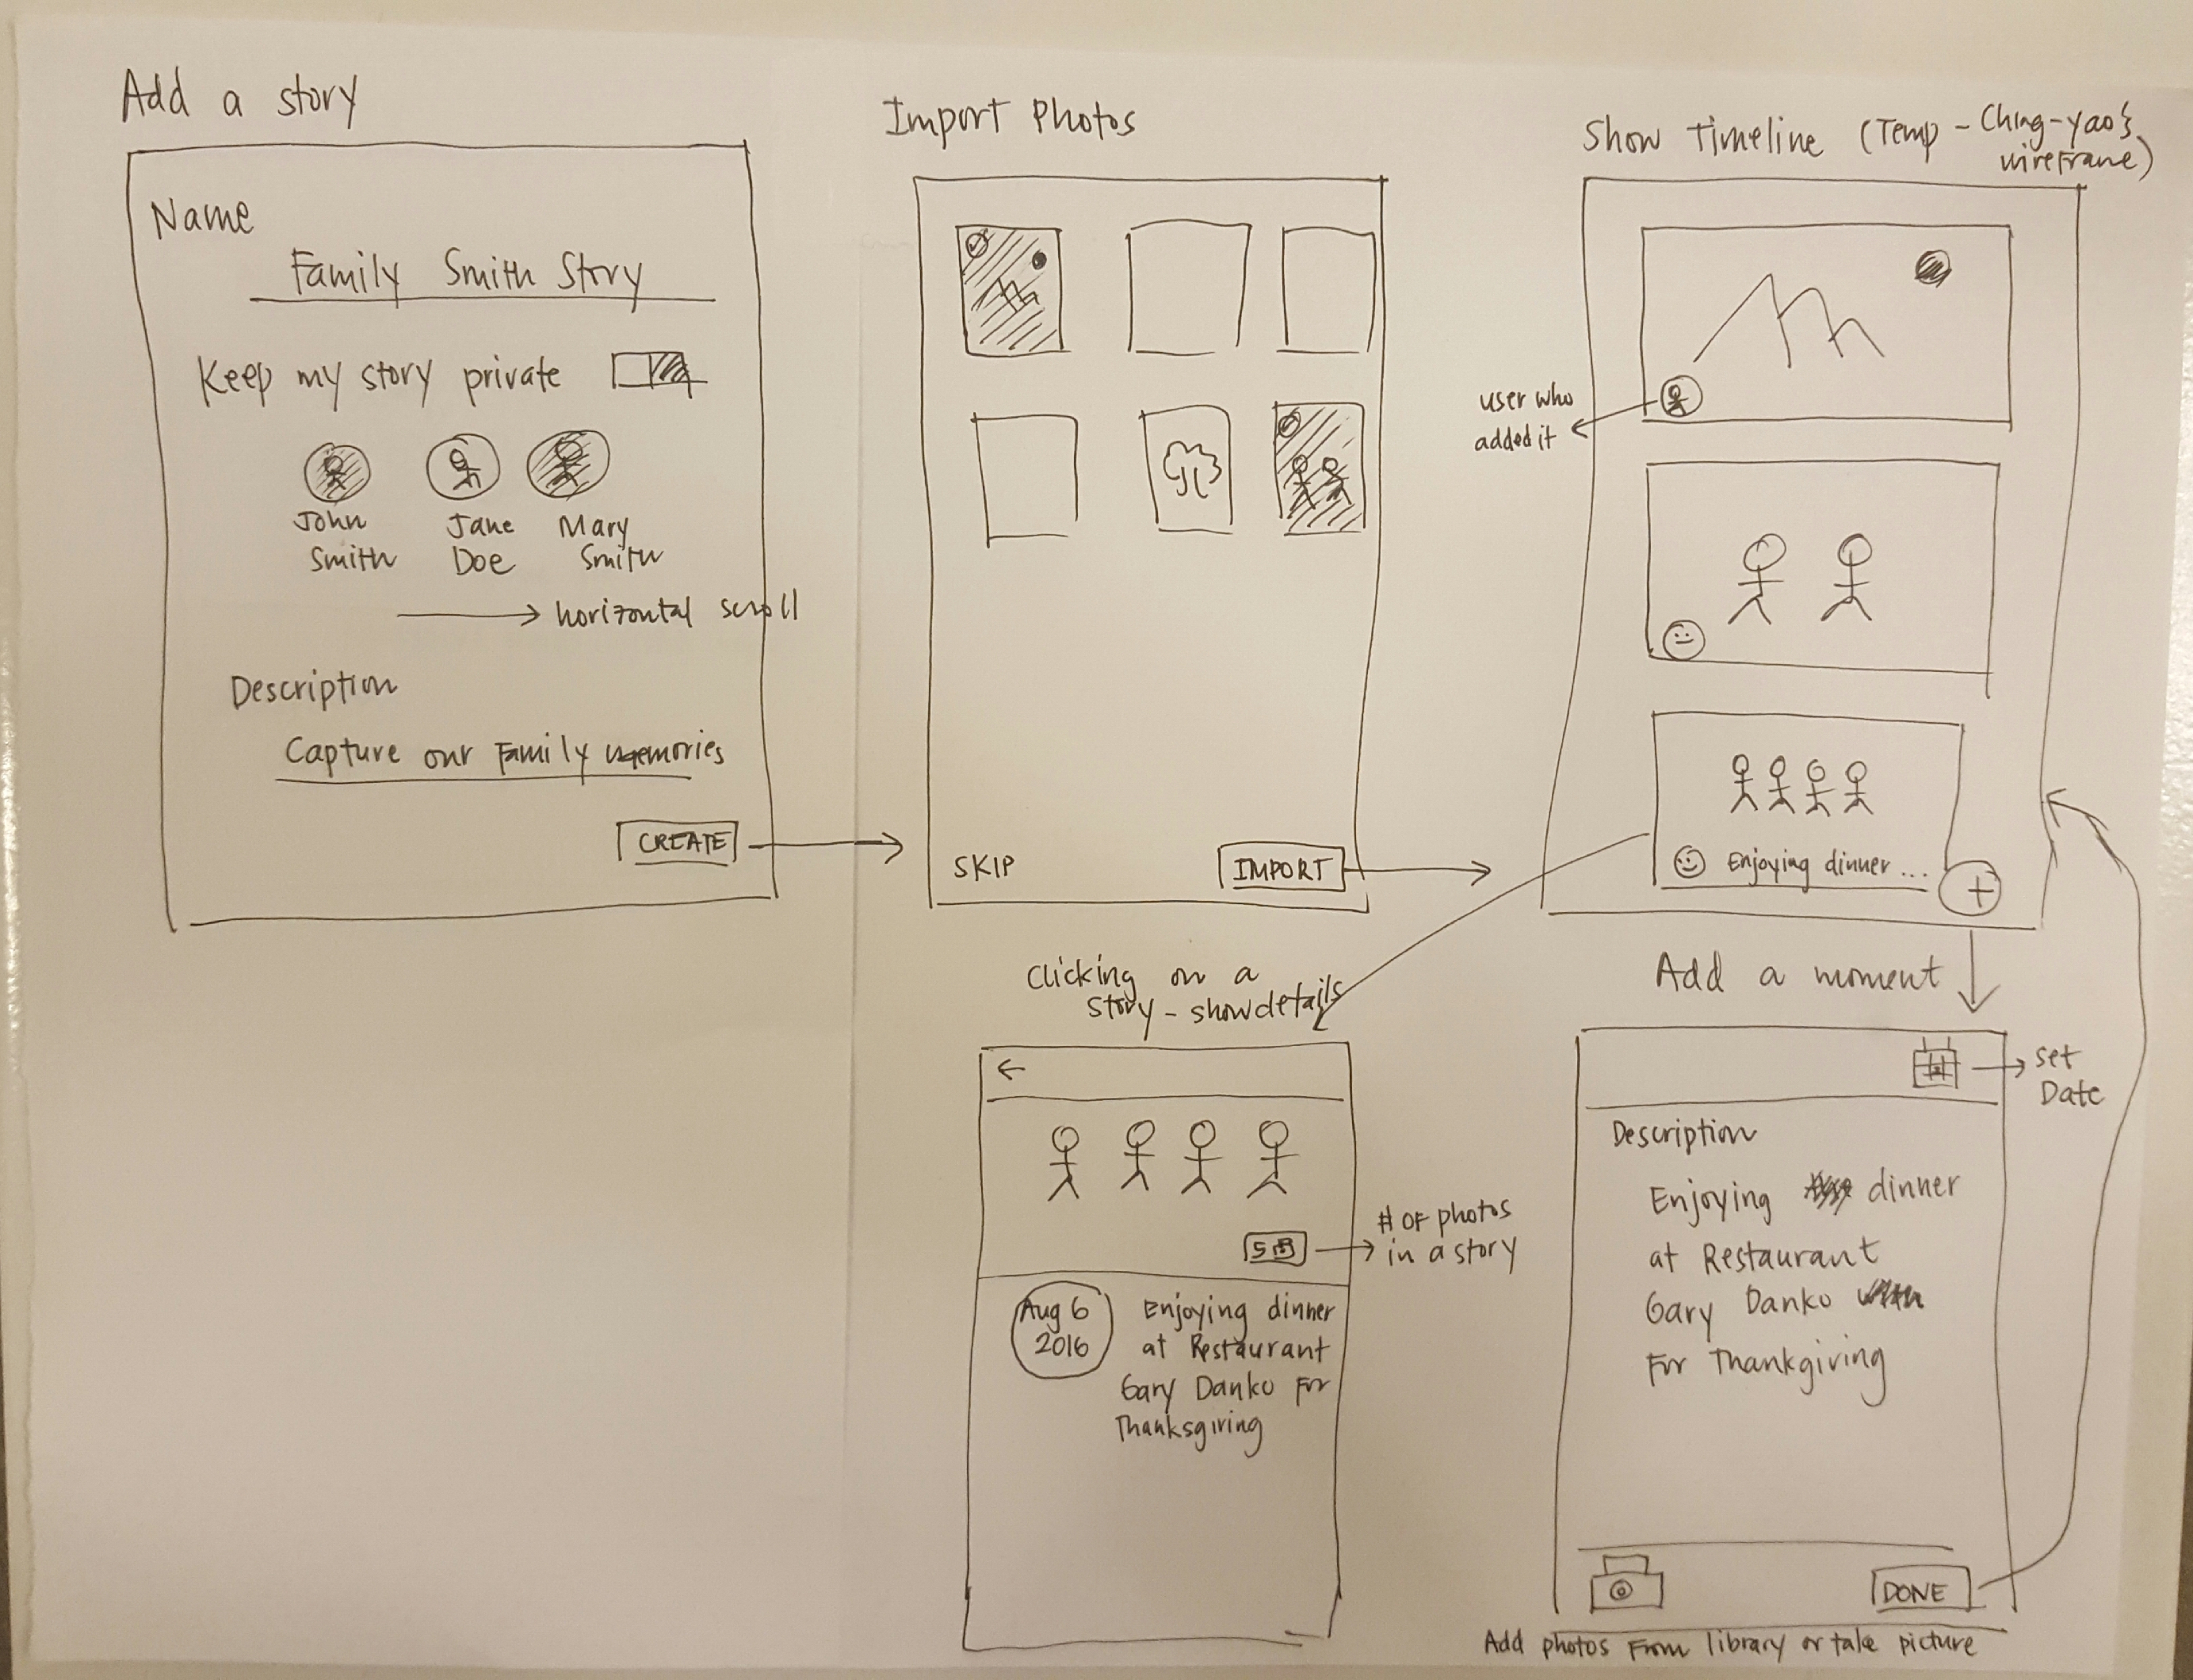 Add a story
Name
Family Smith Story
Keep my story private
John
Smith
Jane
Doe
Mary
Smith
horizontal scroll
Description
Capture our Family memories
CREATE
Import Photos
SKIP
IMPORT
Show Timeline (Temp - Ching-yao's
wireframe)
user who
added it
Enjoying dinner ...
+
Clicking on a
story - show details
# of photos
in a story
5
Aug 6
2016
Enjoying dinner
at Restaurant
Gary Danko For
Thanksgiving
Add a moment
set
Date
Description
Enjoying dinner
at Restaurant
Gary Danko
For Thankgiving
DONE
Add photos From library or take picture